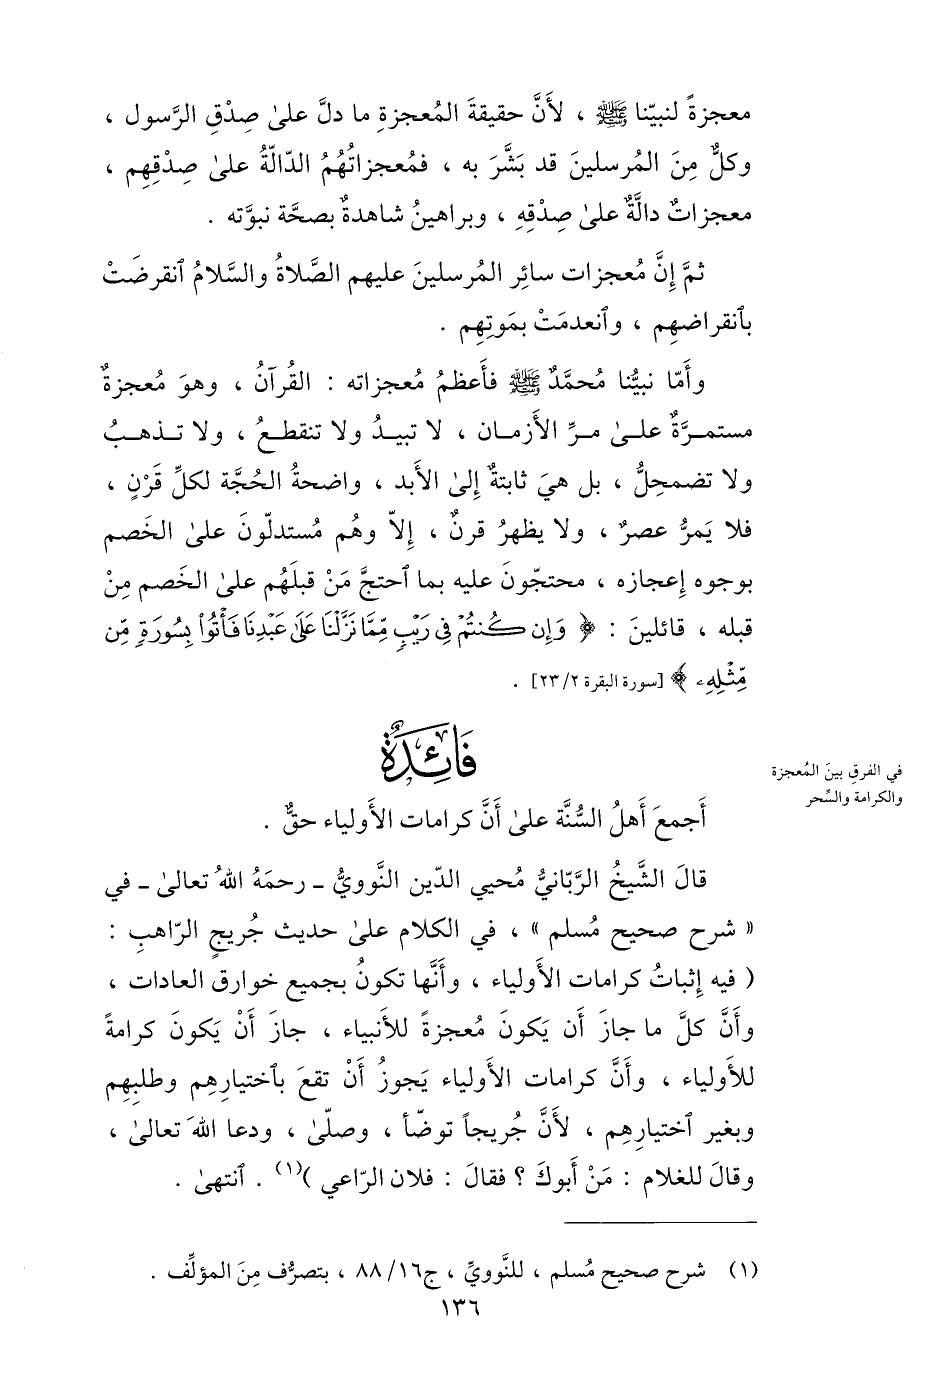 معجزةً لنبيّنا ﷺ ، لأَنَّ حقيقةَ المُعجزةِ ما دلَّ علىٰ صِدْقِ الرَّسول ،
وكلٌّ مِنَ المُرسلينَ قد بَشَّرَ به ، فمُعجزاتُهُمُ الدّالّةُ علىٰ صِدْقِهِم ،
معجزاتٌ دالَّةٌ علىٰ صِدْقِهِ ، وبراهينُ شاهدةٌ بصحَّة نبوَّته .
ثمَّ إِنَّ مُعجزات سائِر المُرسلينَ عليهم الصَّلاةُ والسَّلامُ ٱنقرضَتْ
بٱنقراضِهِم ، وٱنعدمَتْ بمَوتِهِم .
وأَمّا نبيُّنا مُحمَّدٌ ﷺ فأَعظمُ مُعجزاته : القُرآنُ ، وهوَ مُعجزةٌ
مستمرَّةٌ علىٰ مرِّ الأَزمان ، لا تبيدُ ولا تنقطعُ ، ولا تذهبُ
ولا تضمحِلُّ ، بل هيَ ثابتةٌ إِلىٰ الأَبد ، واضحةُ الحُجَّة لكلِّ قَرْنٍ ،
فلا يَمرُّ عصرٌ ، ولا يظهرُ قرنٌ ، إِلاّ وهُم مُستدلّونَ علىٰ الخَصم
بوجوه إِعجازه ، محتجّونَ عليه بما ٱحتجَّ مَنْ قبلَهُم علىٰ الخَصم مِنْ
قبله ، قائلينَ : ﴿ وَإِن كُنتُمْ فِى رَيْبٍ مِّمَّا نَزَّلْنَا عَلَىٰ عَبْدِنَا فَأْتُواْ بِسُورَةٍ مِّن
مِّثْلِهِۦ ﴾ [سورة البقرة ٢/ ٢٣] .
فَائِدَةٌ
في الفرقِ بينَ المُعجزة
والكرامة والسِّحر
أَجمعَ أَهلُ السُّنَّة علىٰ أَنَّ كرامات الأَولياء حقٌّ .
قالَ الشَّيخُ الرَّبّانيُّ مُحيي الدّين النَّوويُّ ـ رحمَهُ اللهُ تعالىٰ ـ في
« شرح صحيح مُسلم » ، في الكلام علىٰ حديث جُريجٍ الرّاهبِ :
( فيه إِثباتُ كرامات الأَولياء ، وأَنَّها تكونُ بجميع خوارق العادات ،
وأَنَّ كلَّ ما جازَ أَن يَكونَ مُعجزةً للأَنبياء ، جازَ أَنْ يَكونَ كرامةً
للأَولياء ، وأَنَّ كرامات الأَولياء يَجوزُ أَنْ تقعَ بٱختيارِهِم وطلبِهِم
وبغير ٱختيارِهِم ، لأَنَّ جُريجاً توضّأ ، وصلّىٰ ، ودعا اللهَ تعالىٰ ،
وقالَ للغلام : مَنْ أَبوكَ ؟ فقالَ : فلان الرّاعي )(١) . ٱنتهىٰ .
(١) شرح صحيح مُسلم ، للنَّوويِّ ، ج١٦/ ٨٨ ، بتصرُّف مِنَ المؤلِّف .
١٣٦